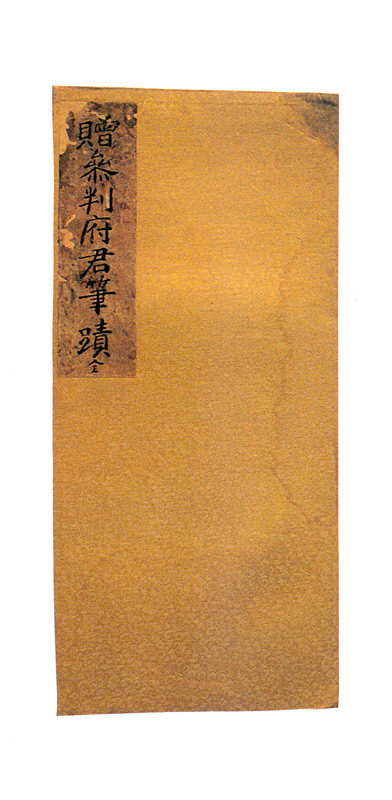 贈參判府君筆蹟 全